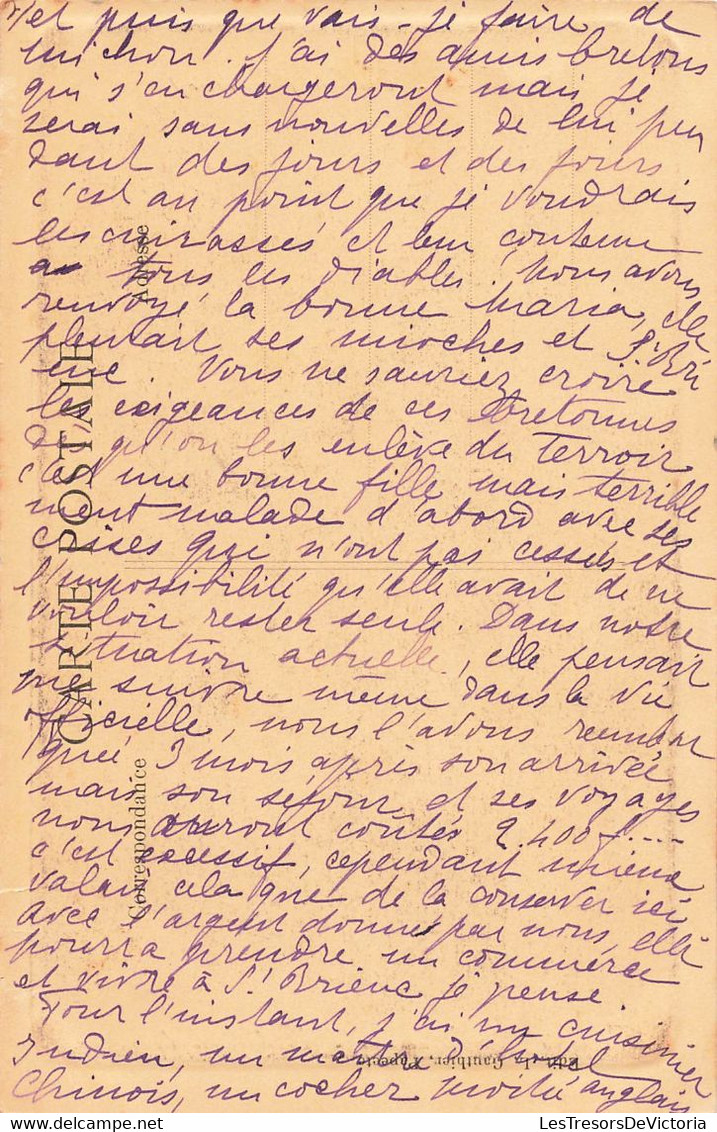 et puis que vais-je faire de
michon. J'ai des amis bretons
qui s'en chargeront mais je
serai sans nouvelles de lui pen
dant des jours et des jours
c'est au point que je voudrais
les cuirassés et leur contenu
à tous les diables. Nous avons
renvoyé la bonne Maria, elle
pleurait ses mioches et St Bri
euc. Vous ne sauriez croire
les exigeances de ces bretonnes
dès qu'on les enlève du terroir
c'est une bonne fille mais terrible
ment malade d'abord avec ses
crises qui n'ont pas cessés et
l'impossibilité qu'elle avait de ne
vouloir rester seule. Dans notre
situation actuelle, elle pensait
me suivre même dans la vie
officielle, nous l'avons rembar
quée 3 mois après son arrivée
mais son séjour et ses voyages
nous auront coûtés 2.400 f....
c'est excessif, cependant mieux
valait cela que de la conserver ici
avec l'argent donné par nous elle
pourra prendre un commerce
et vivre à St Brieuc je pense
Pour l'instant, j'ai un cuisinier
Indien, un maître d'hôtel
Chinois, un cocher moitié anglais
CARTE POSTALE
Correspondance
Adresse
Edit. L. Gauthier, Papeete
LesTresorsDeVictoria